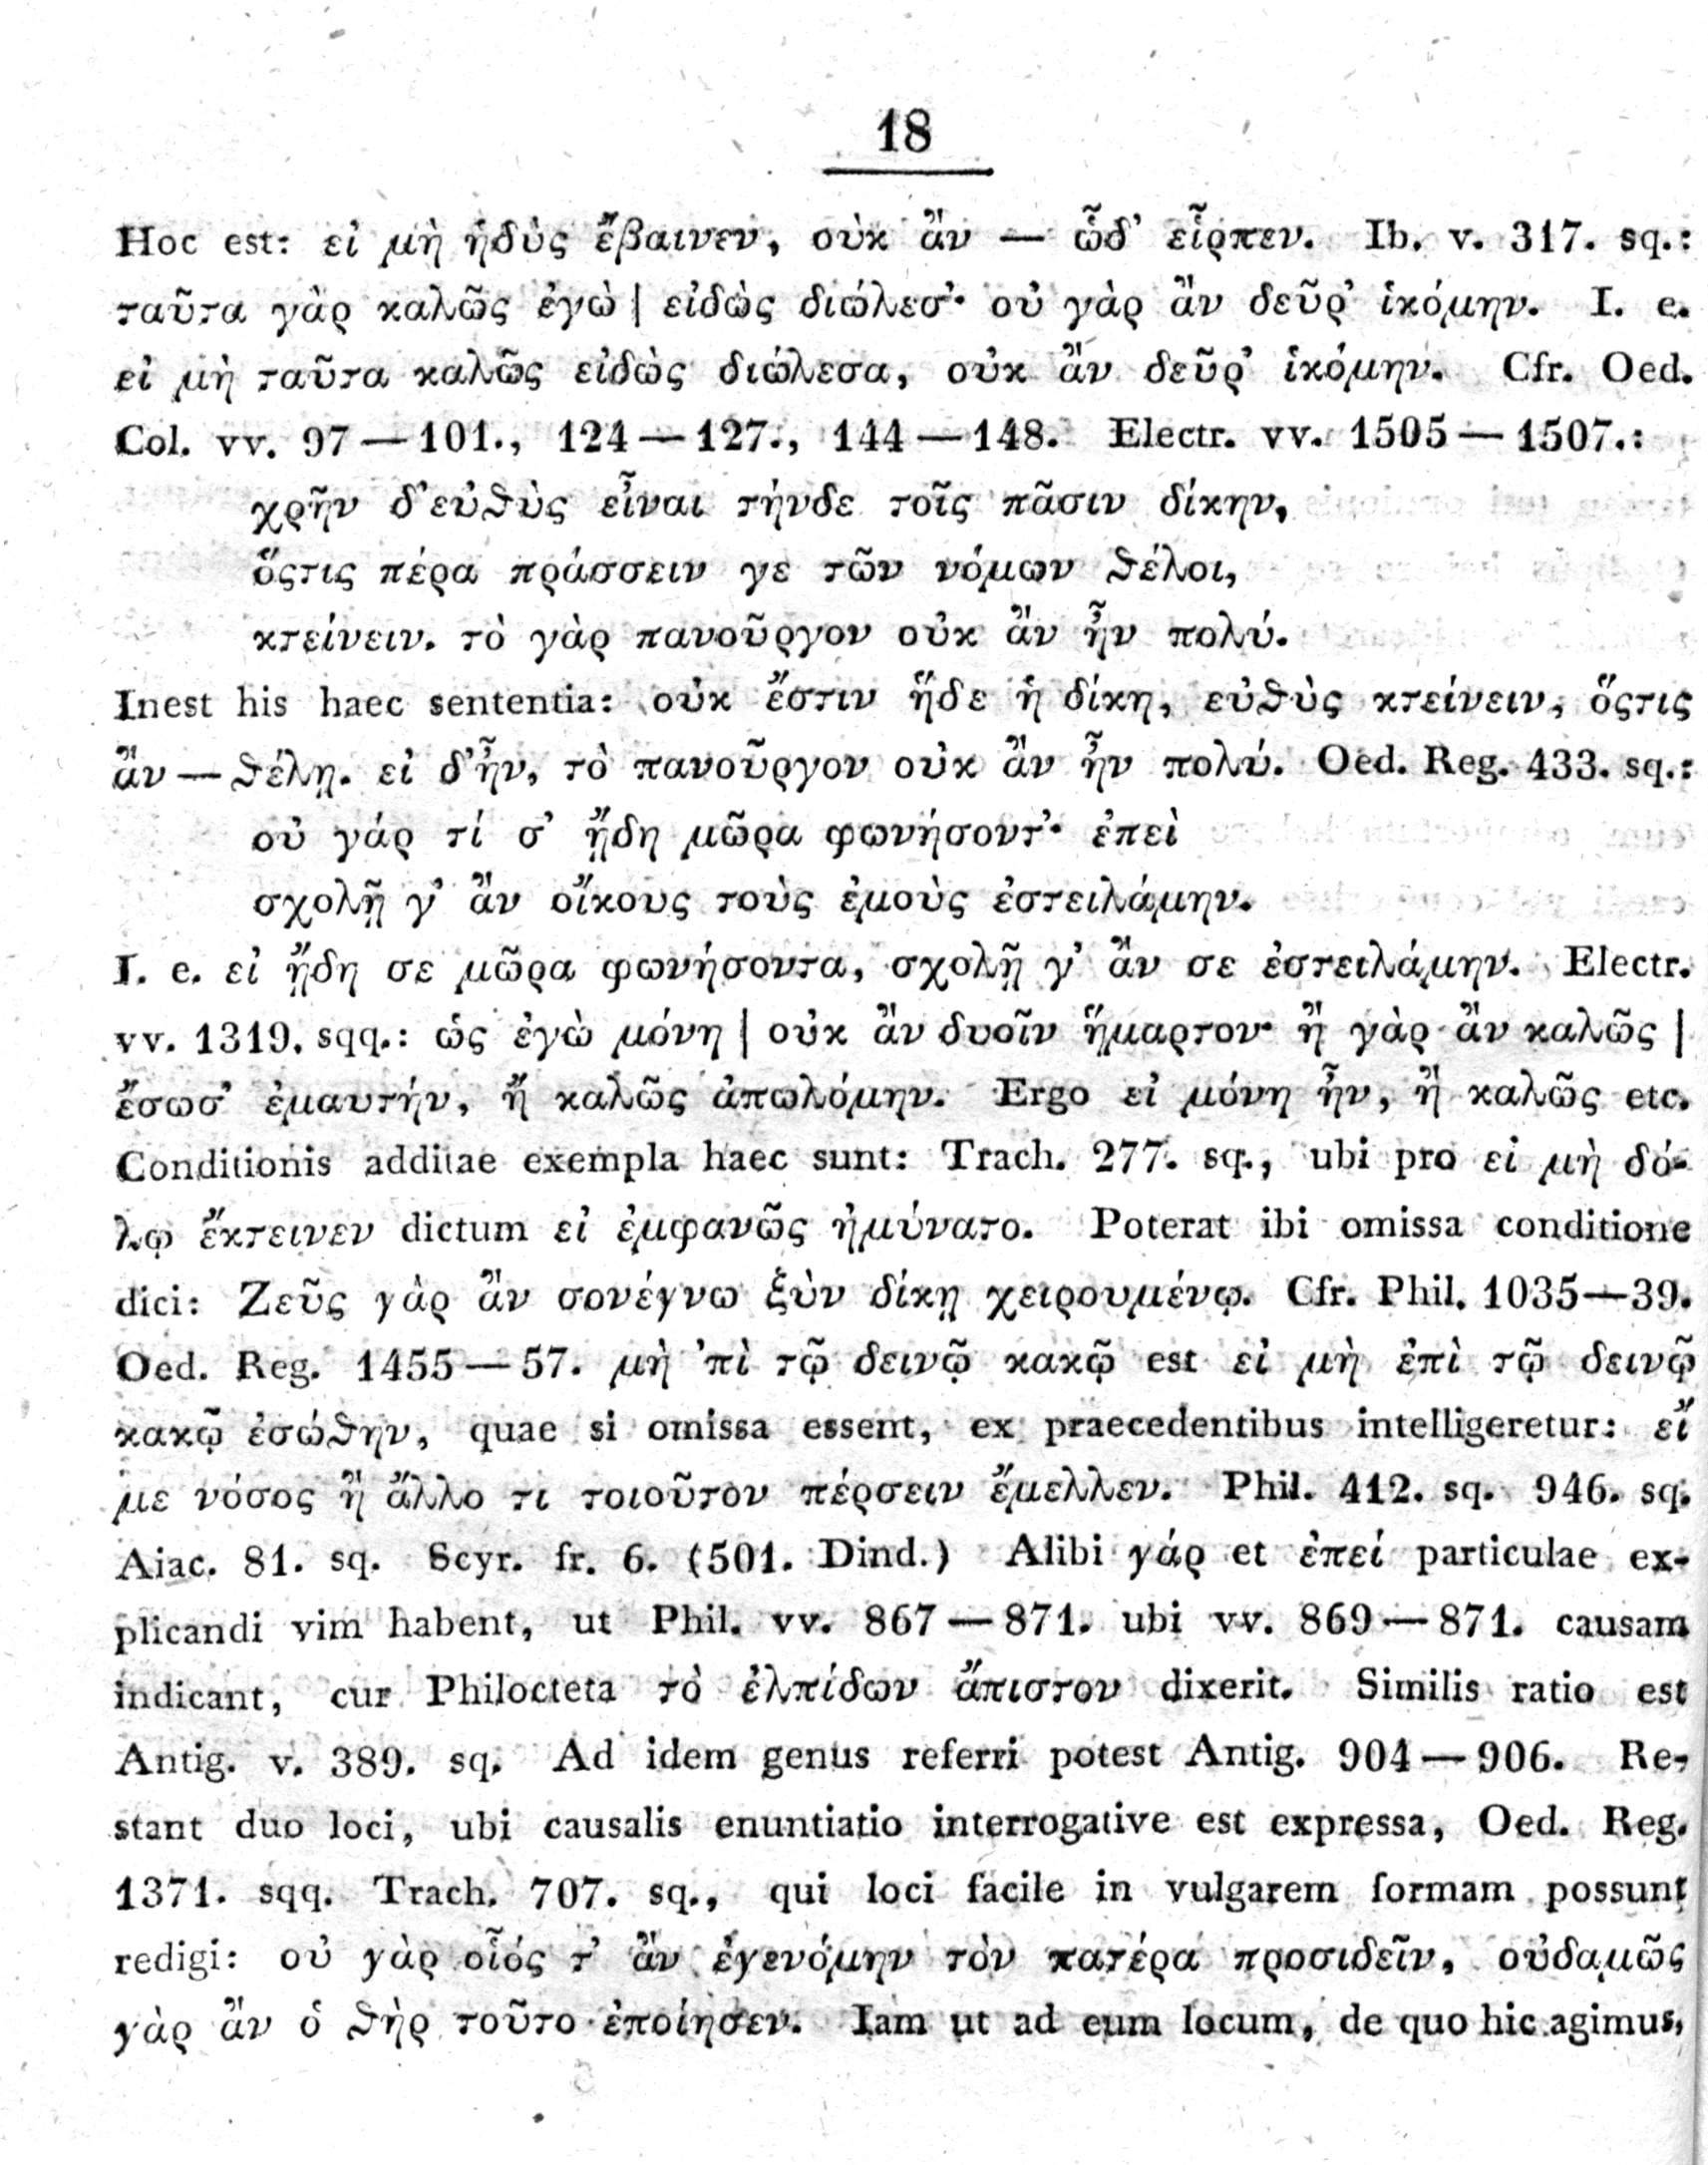 18
Hoc est: εἰ μὴ ἡδὺς ἔβαινεν, οὐκ ἂν — ὧδ᾽ εἷρπεν. Ib. v. 317. sq.:
ταῦτα γὰρ καλῶς ἐγὼ | εἰδὼς διώλεσ᾽· οὐ γὰρ ἂν δεῦρ᾽ ἱκόμην. I. e.
εἰ μὴ ταῦτα καλῶς εἰδὼς διώλεσα, οὐκ ἂν δεῦρ᾽ ἱκόμην. Cfr. Oed.
Col. vv. 97 — 101., 124 — 127., 144 — 148. Electr. vv. 1505 — 1507.:
χρῆν δ᾽εὐϑὺς εἶναι τήνδε τοῖς πᾶσιν δίκην,
ὅςτις πέρα πράσσειν γε τῶν νόμων ϑέλοι,
κτείνειν. τὸ γὰρ πανοῦργον οὐκ ἂν ἦν πολύ.
Inest his haec sententia: οὐκ ἔστιν ἥδε ἡ δίκη, εὐϑὺς κτείνειν, ὅςτις
ἂν — ϑέλῃ. εἰ δ᾽ἦν, τὸ πανοῦργον οὐκ ἂν ἦν πολύ. Oed. Reg. 433. sq.:
οὐ γάρ τί σ᾽ ᾔδη μῶρα φωνήσοντ᾽· ἐπεὶ
σχολῇ γ᾽ ἂν οἴκους τοὺς ἐμοὺς ἐστειλάμην.
I. e. εἰ ᾔδη σε μῶρα φωνήσοντα, σχολῇ γ᾽ ἂν σε ἐστειλάμην. Electr.
vv. 1319. sqq.: ὡς ἐγὼ μόνη | οὐκ ἂν δυοῖν ἥμαρτον· ἢ γὰρ ἂν καλῶς |
ἔσωσ᾽ ἐμαυτήν, ἢ καλῶς ἀπωλόμην. Ergo εἰ μόνη ἦν, ἢ καλῶς etc.
Conditionis additae exempla haec sunt: Trach. 277. sq., ubi pro εἰ μὴ δό-
λῳ ἔκτεινεν dictum εἰ ἐμφανῶς ἠμύνατο. Poterat ibi omissa conditione
dici: Ζεῦς γὰρ ἂν σονέγνω ξὺν δίκῃ χειρουμένῳ. Cfr. Phil. 1035—39.
Oed. Reg. 1455 — 57. μὴ ᾽πὶ τῷ δεινῷ κακῷ est εἰ μὴ ἐπὶ τῷ δεινῷ
κακῷ ἐσώϑην, quae si omissa essent, ex praecedentibus intelligeretur: εἴ
με νόσος ἢ ἄλλο τι τοιοῦτον πέρσειν ἔμελλεν. Phil. 412. sq. 946. sq.
Aiac. 81. sq. Scyr. fr. 6. (501. Dind.) Alibi γάρ et ἐπεί particulae ex-
plicandi vim habent, ut Phil. vv. 867 — 871. ubi vv. 869 — 871. causam
indicant, cur Philocteta τὸ ἐλπίδων ἄπιστον dixerit. Similis ratio est
Antig. v. 389. sq. Ad idem genus referri potest Antig. 904 — 906. Re-
stant duo loci, ubi causalis enuntiatio interrogative est expressa, Oed. Reg.
1371. sqq. Trach. 707. sq., qui loci facile in vulgarem formam possunt
redigi: οὐ γὰρ οἷός τ᾽ ἂν ἐγενόμην τὸν πατέρα προσιδεῖν, οὐδαμῶς
γὰρ ἂν ὁ ϑὴρ τοῦτο ἐποίησεν. Iam ut ad eum locum, de quo hic agimus,